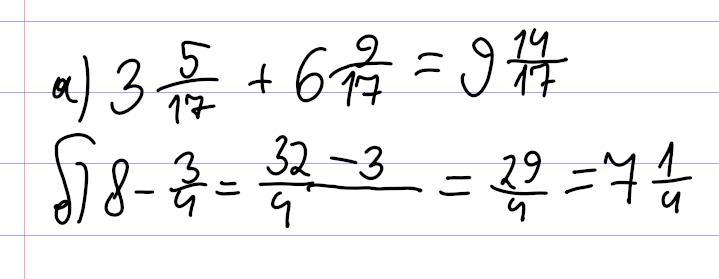 а) 3 5/17 + 6 9/17 = 9 14/17
б) 8 - 3/4 = (32 - 3)/4 = 29/4 = 7 1/4